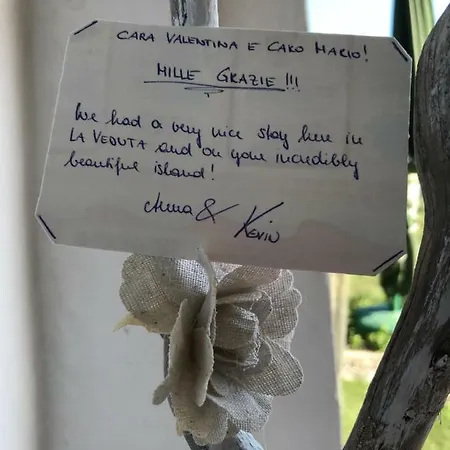 CARA VALENTINA E CARO MARIO!
MILLE GRAZIE!!!
We had a very nice stay here in
LA VEDUTA and on your incredibly
beautiful island!
Anna & Kevin